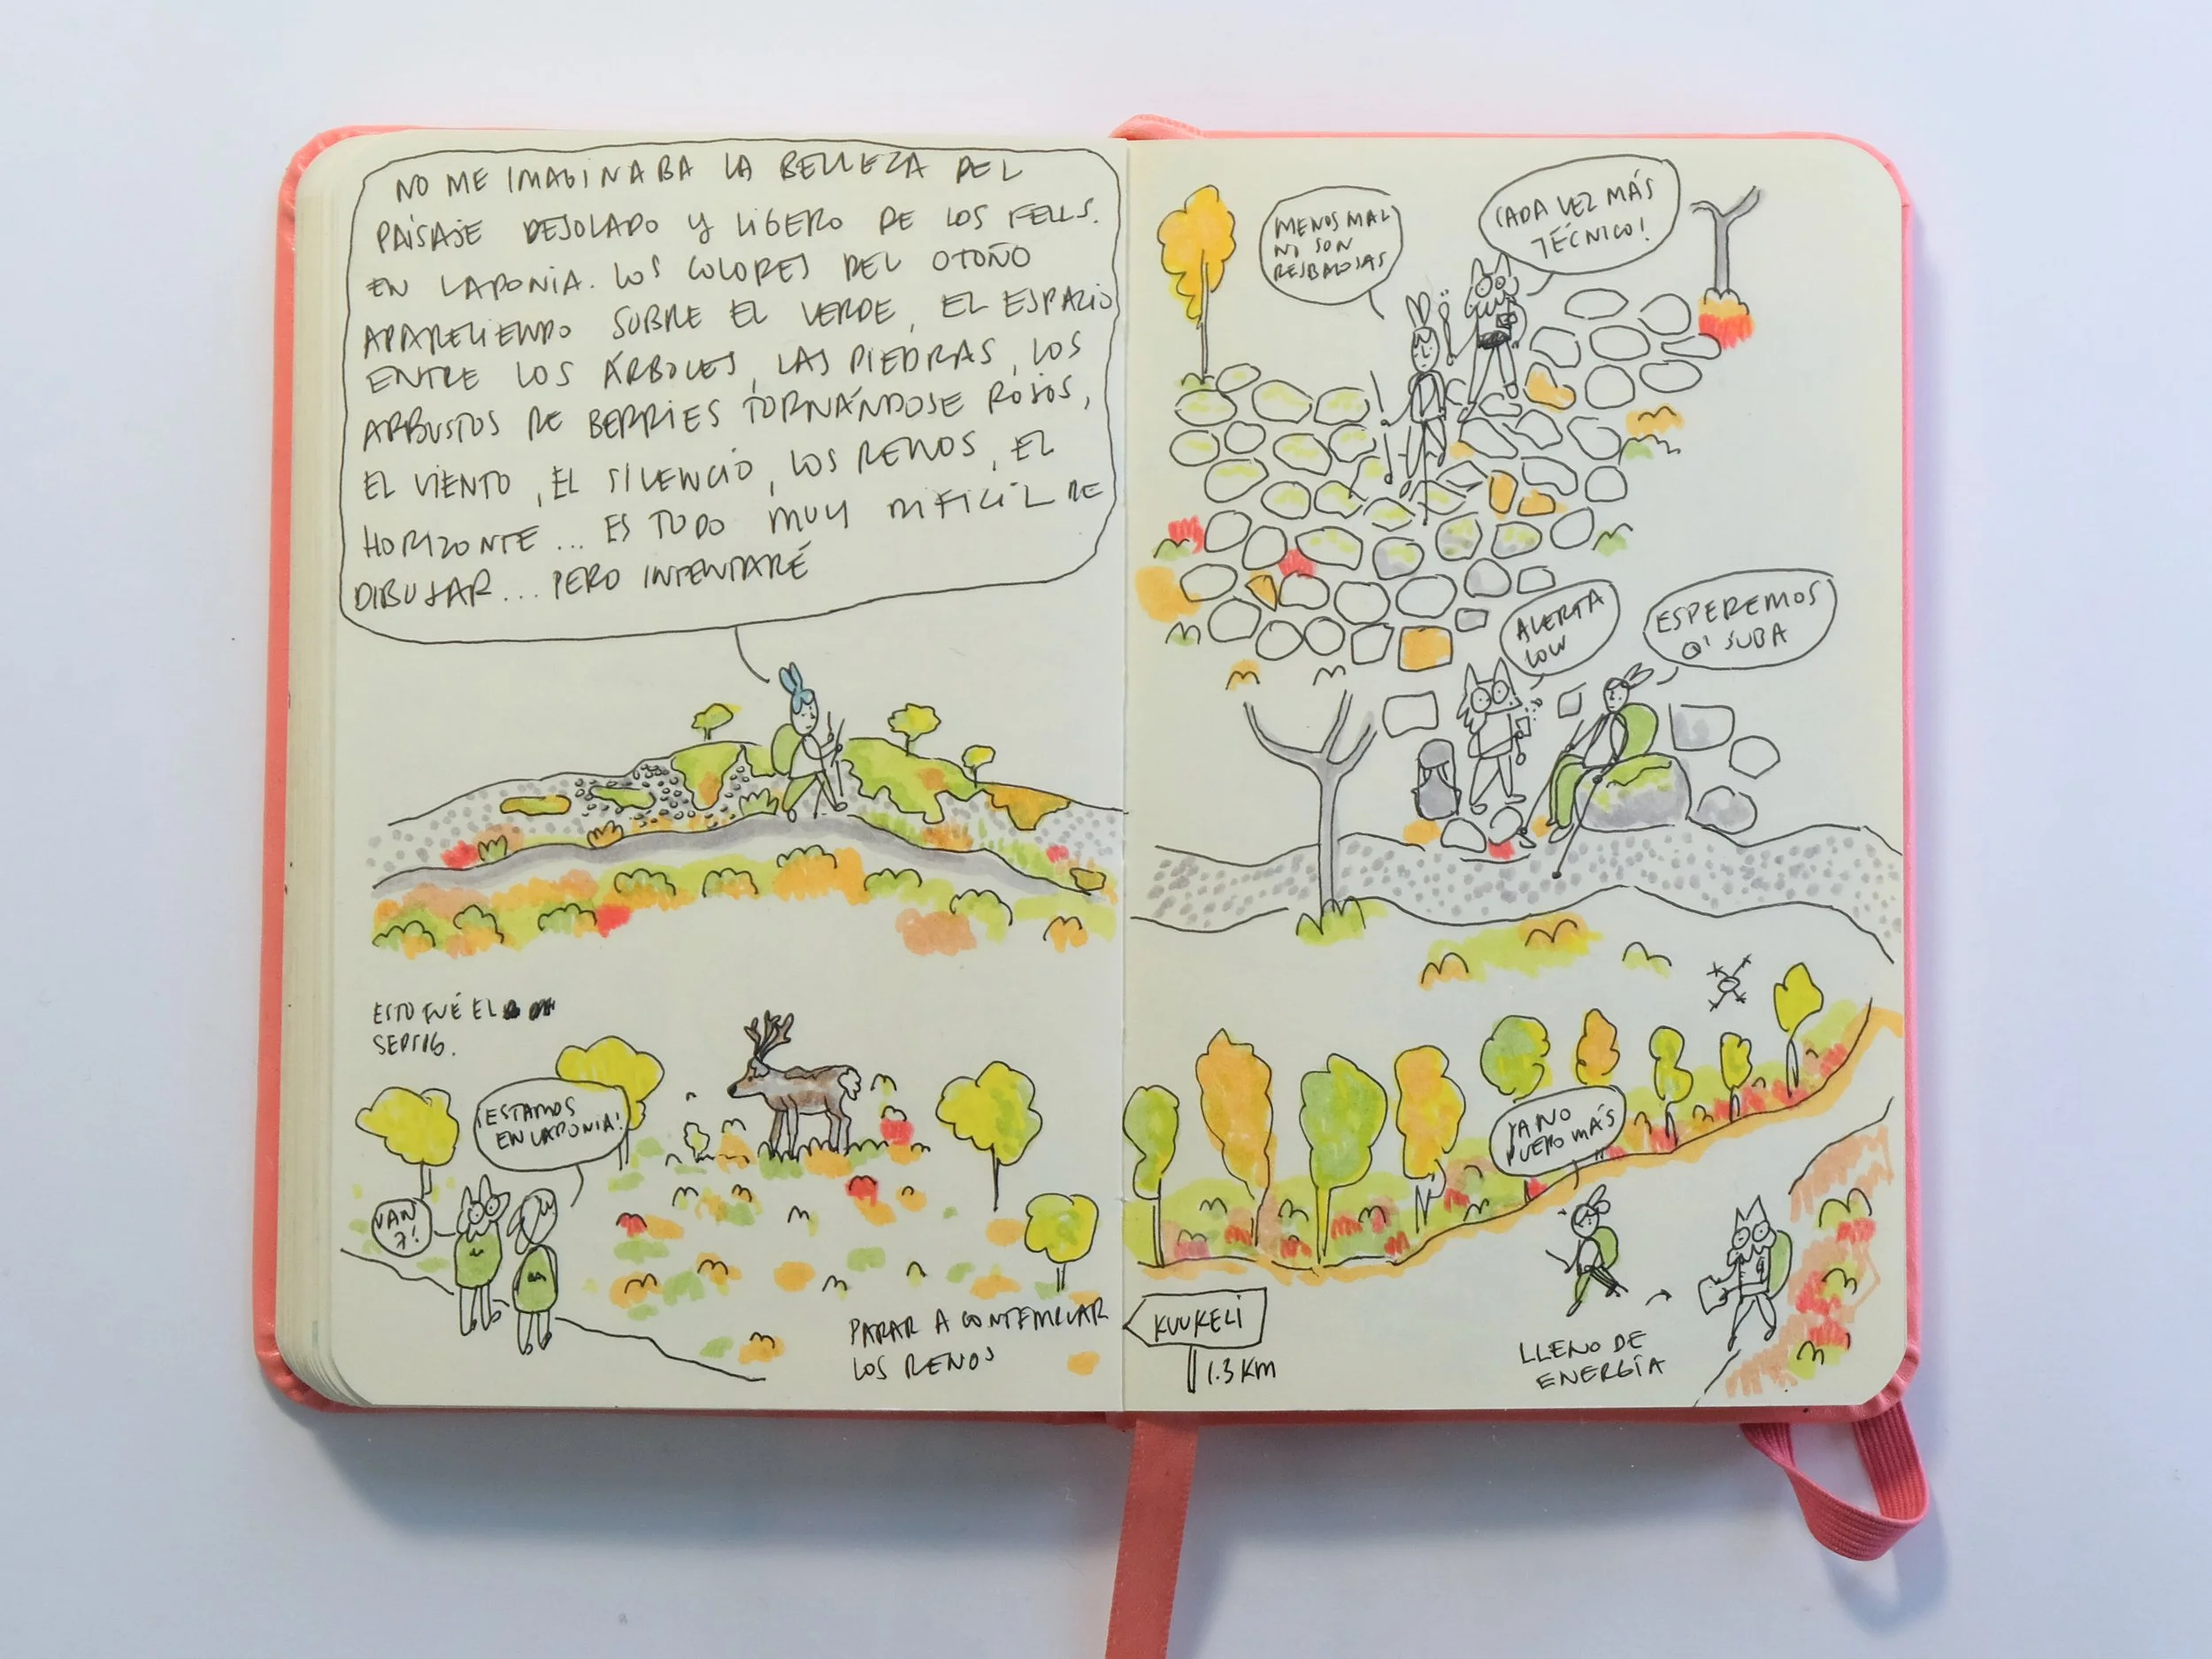 NO ME IMAGINABA LA BELLEZA DEL
PAÍSAJE DESOLADO Y LIGERO DE LOS FELLS.
EN LAPONIA. LOS COLORES DEL OTOÑO
APARECIENDO SOBRE EL VERDE, EL ESPACIO
ENTRE LOS ÁRBOLES, LAS PIEDRAS, LOS
ARBUSTOS DE BERRIES TORNÁNDOSE ROJOS,
EL VIENTO, EL SILENCIO, LOS RENOS, EL
HORIZONTE... ES TODO MUY DIFICIL DE
DIBUJAR... PERO INTENTARÉ
ESTO FUÉ EL
SEPT 16.
¡ESTAMOS
EN LAPONIA!
VAN
7!
PARAR A CONTEMPLAR
LOS RENOS
MENOS MAL
NO SON
RESBALOSAS
CADA VEZ MÁS
TÉCNICO!
ALERTA
LOW
ESPEREMOS
Q' SUBA
YA NO
PUEDO MÁS
KUUKELI
1.3 KM
LLENO DE
ENERGÍA